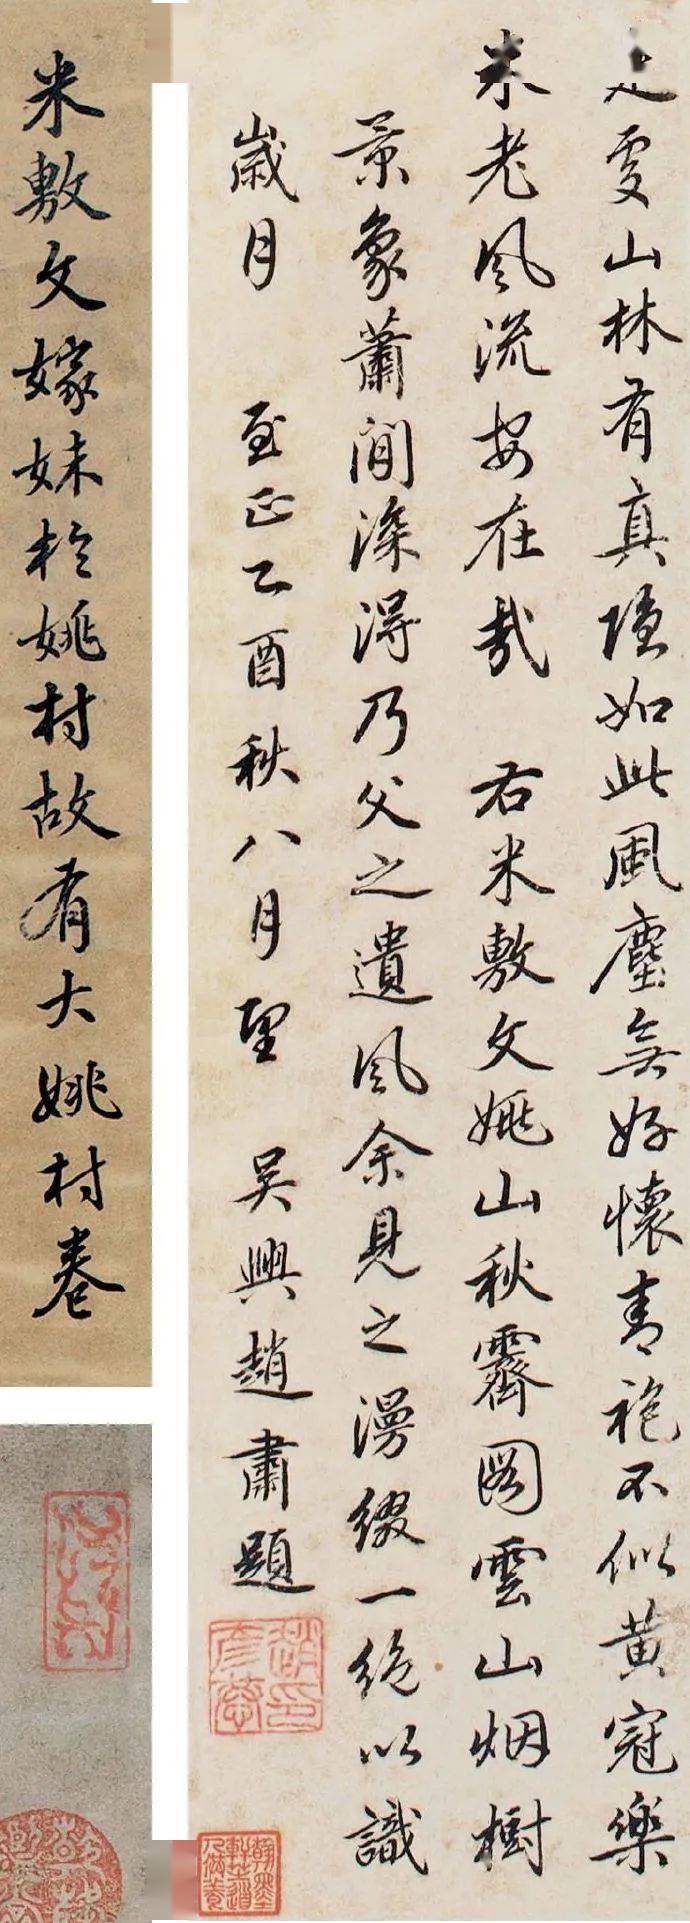 處山林有真隱如此風塵無好懷青袍不似黃冠樂
米老風流安在哉 右米敷文姚山秋霽圖雲山烟樹
景象蕭間深得乃父之遺風余見之漫綴一絕以識
歲月 至正乙酉秋八月望 吳興趙肅題
米敷文嫁妹於姚村故有大姚村卷